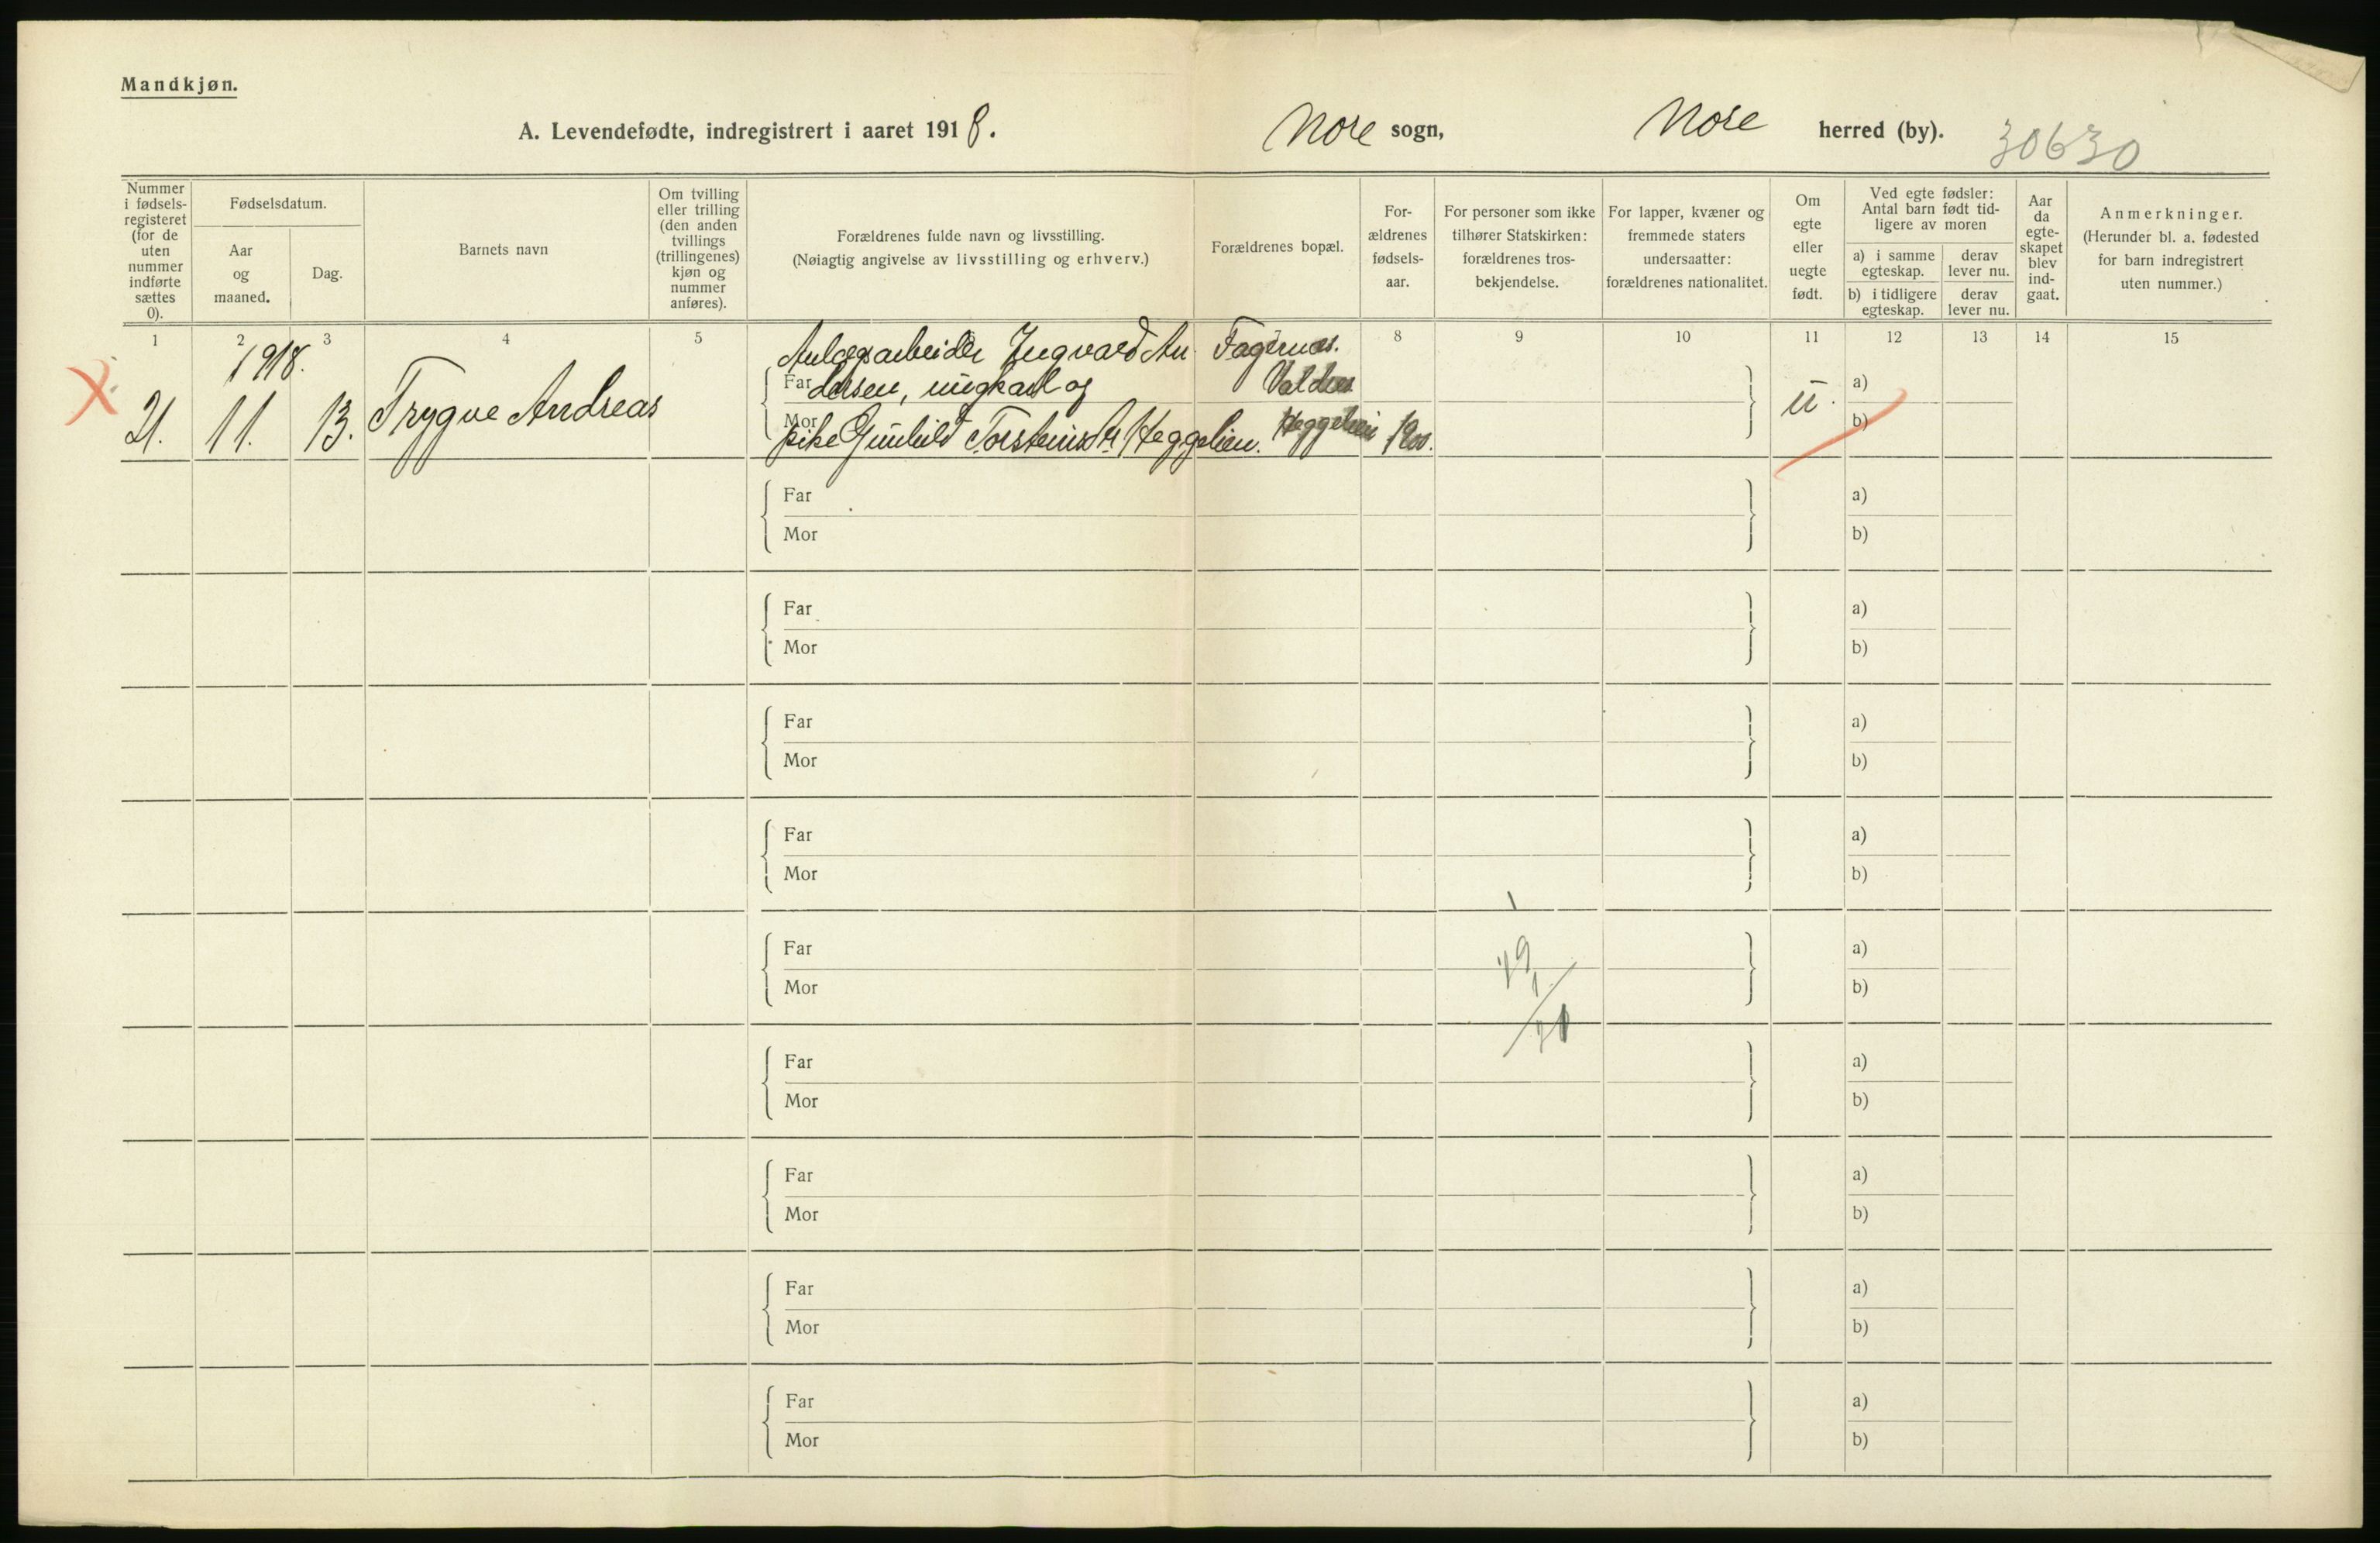 Mandkjøn.
A. Levendefødte, indregistrert i aaret 1918. Nore sogn, Nore herred (by). 30630
Nummer i fødsels-registeret (for de uten nummer indførte sættes 0).
Fødselsdatum.
Aar og maaned.
Dag.
Barnets navn
Om tvilling eller trilling (den anden tvillings (trillingenes) kjøn og nummer anføres).
Forældrenes fulde navn og livsstilling.
(Nøiagtig angivelse av livsstilling og erhverv.)
Forældrenes bopæl.
For-ældrenes fødsels-aar.
For personer som ikke tilhører Statskirken: forældrenes tros-bekjendelse.
For lapper, kvæner og fremmede staters undersaatter: forældrenes nationalitet.
Om egte eller uegte født.
Ved egte fødsler: Antal barn født tid-ligere av moren
a) i samme egteskap.
derav lever nu.
b) i tidligere egteskap.
derav lever nu.
Aar da egte-skapet blev ind-gaat.
Anmerkninger.
(Herunder bl. a. fødested for barn indregistrert uten nummer.)
1 2 3 4 5 8 9 10 11 12 13 14 15
1918.
Anlægsarbeider Ingvard An- Fagernæs.
Far dersen, ungkarl og Valdres a)
X 21. 11. 13. Trygve Andreas ü.
Mor pike Gunhild Torsteinsdtr Heggelien. Heggelien 1900. b)
Far a)
Mor b)
Far a)
Mor b)
Far a)
Mor b)
Far a)
Mor b)
Far a)
Mor b)
Far a)
Mor b)
Far a)
Mor b)
Far a)
Mor b)
Far a)
Mor b)